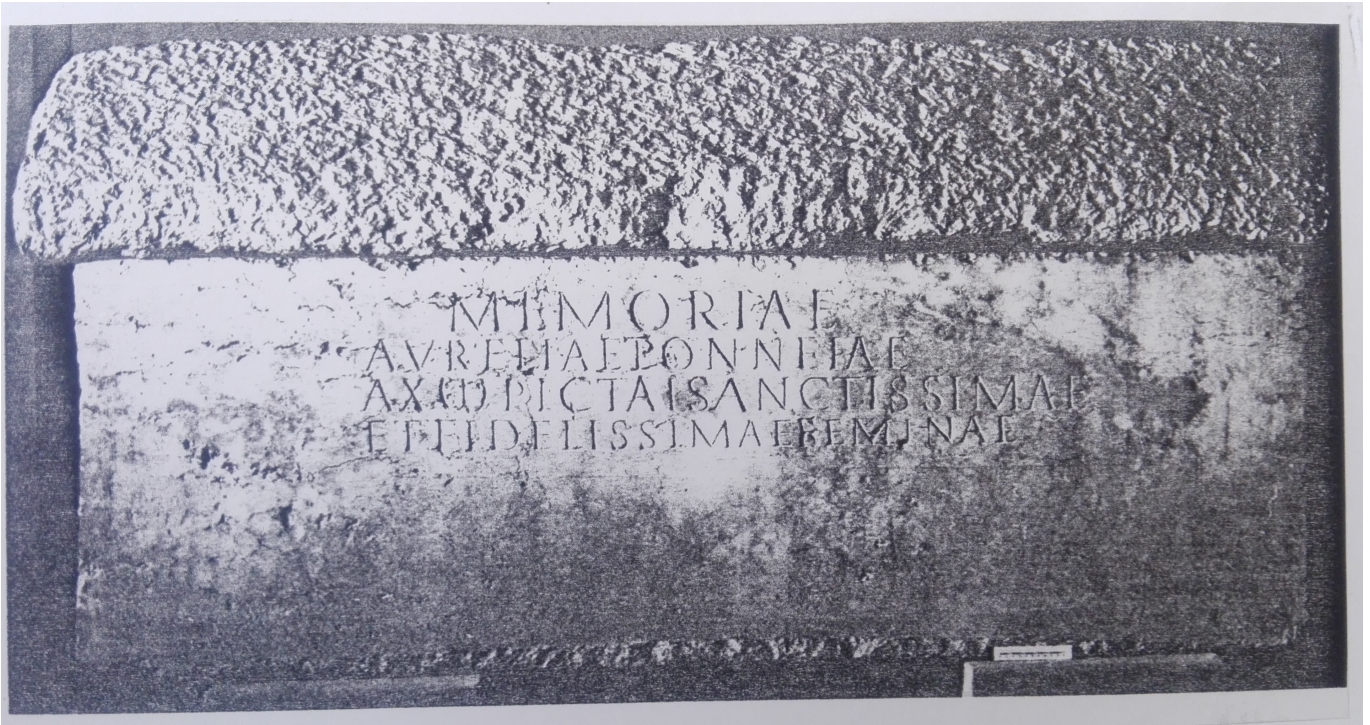 MEMORIAE
AVRELIAE PONNEIAE
SANCTISSIMAE
ET FIDELISSIMAE FEMINAE